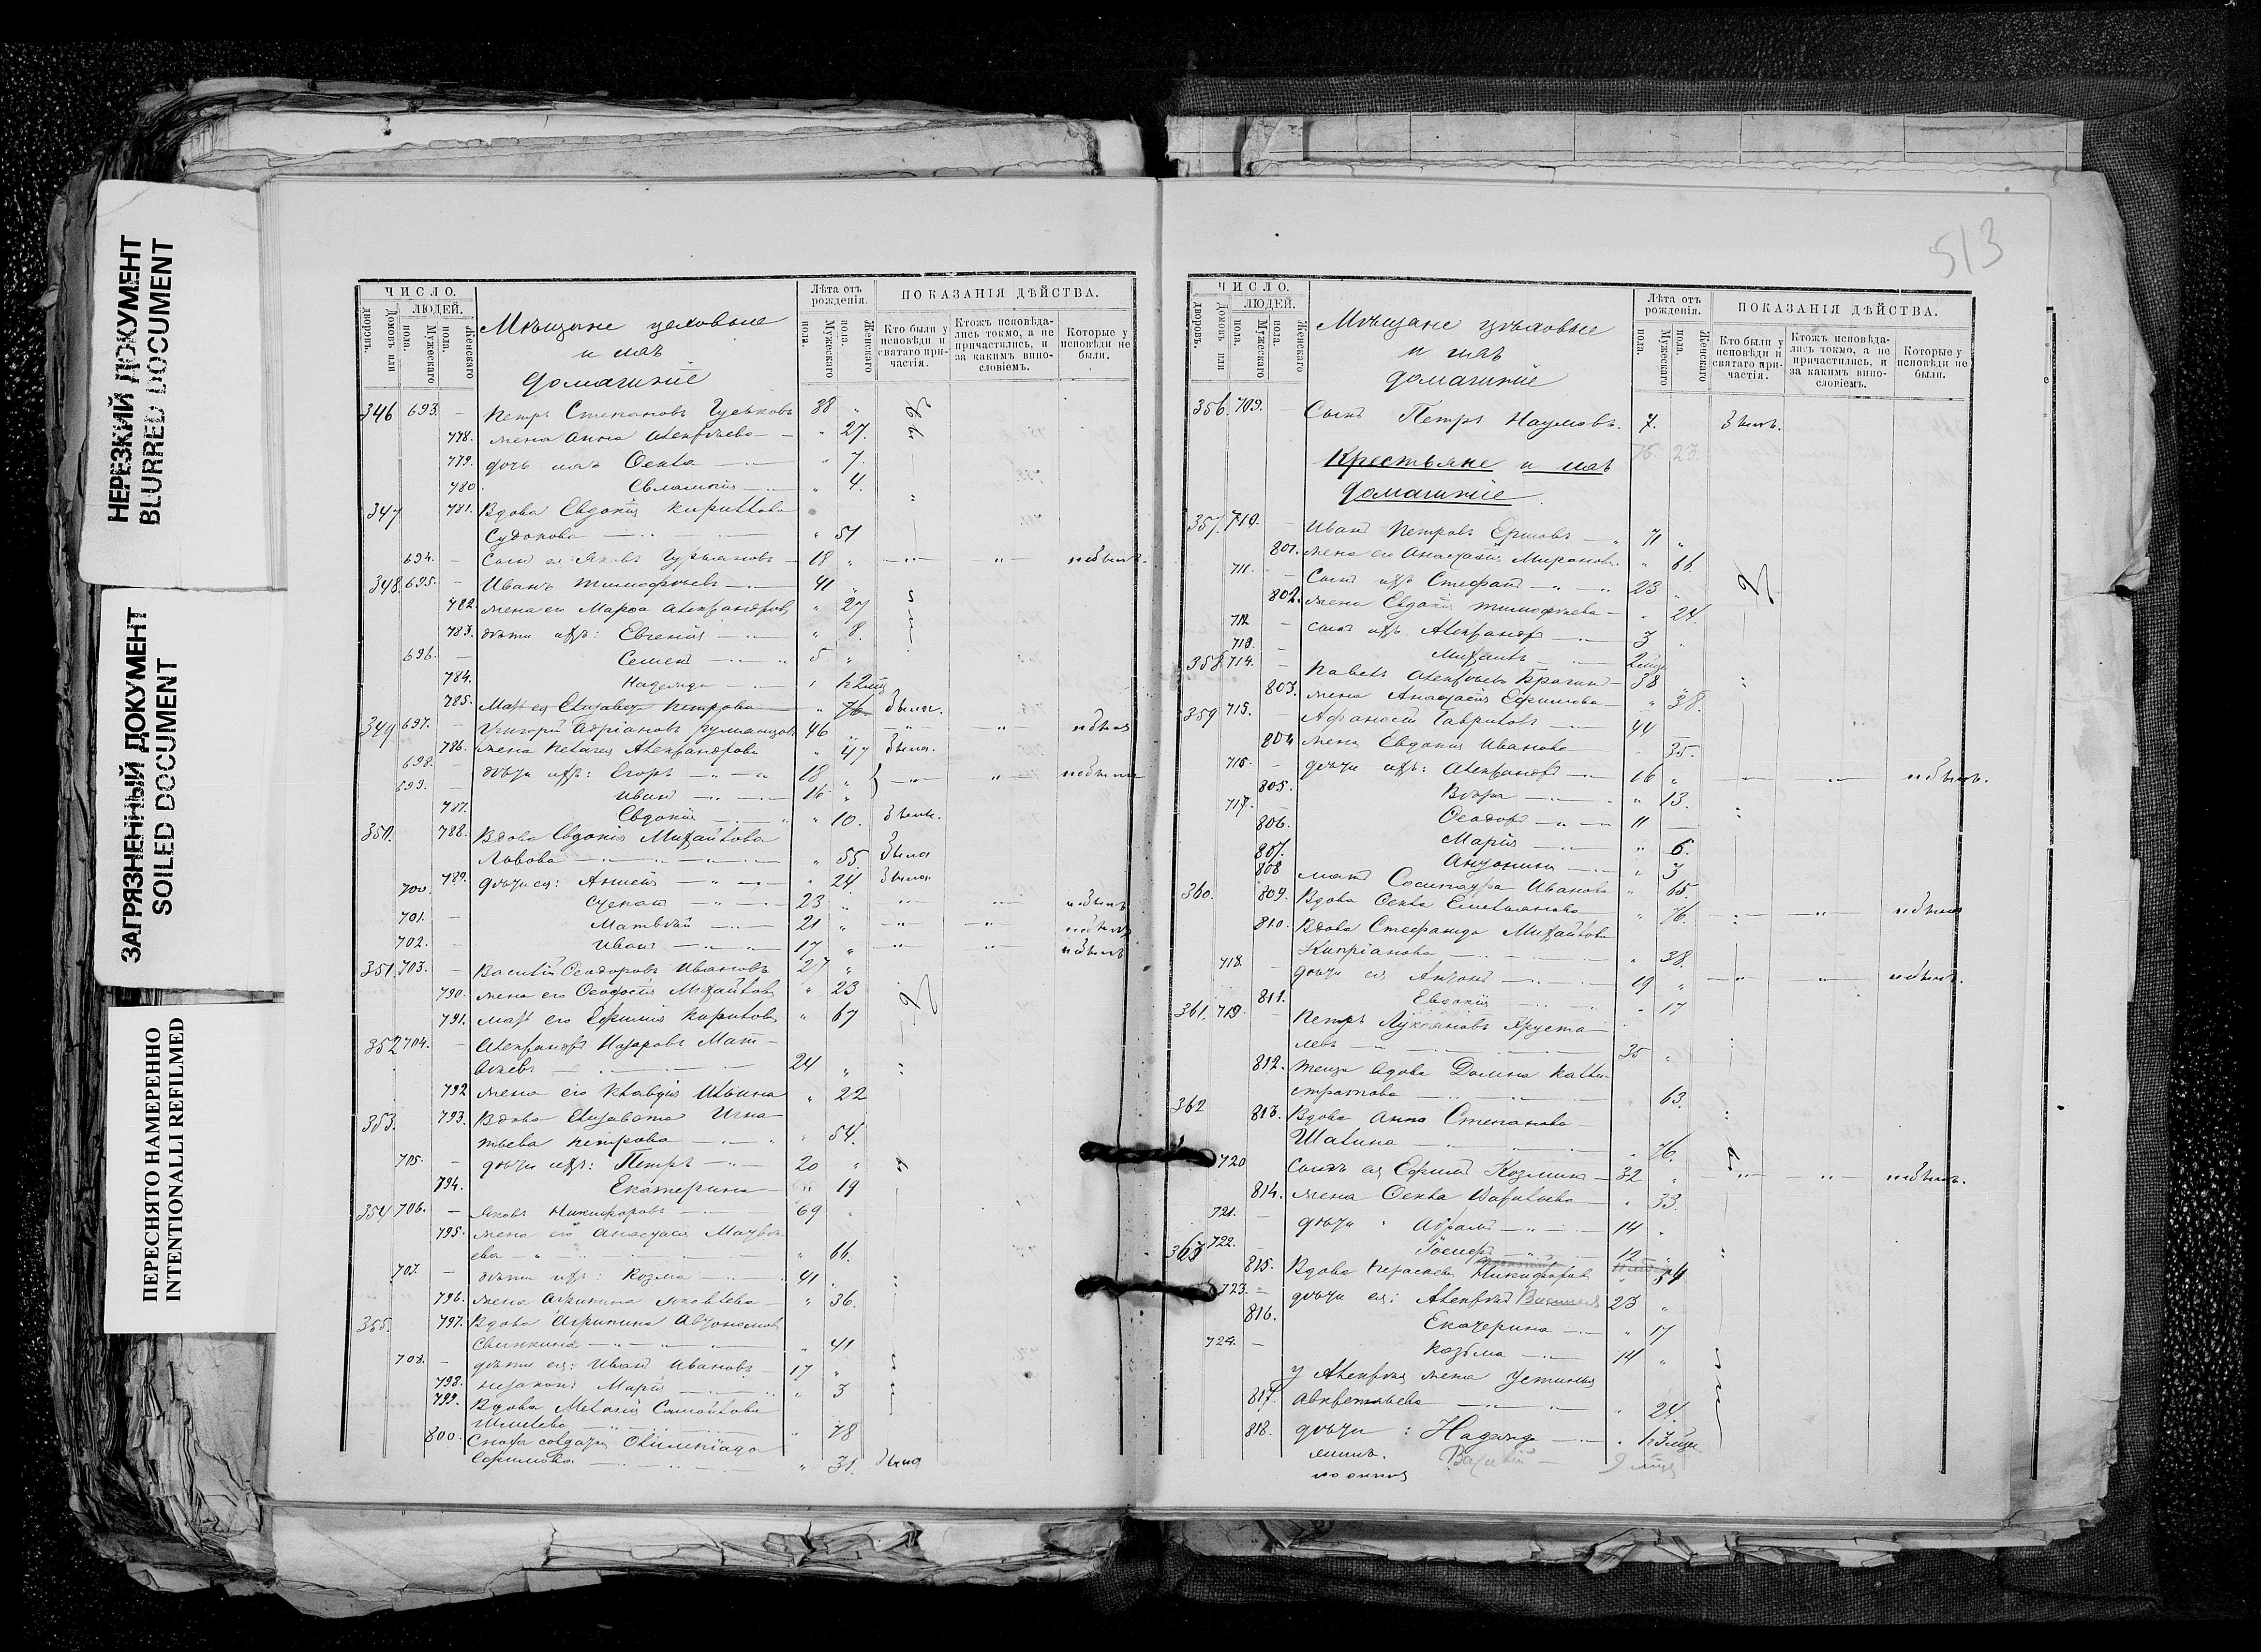 НЕРЕЗКИЙ ДОКУМЕНТ
BLURRED DOCUMENT
ЗАГРЯЗНЕННЫЙ ДОКУМЕНТ
SOILED DOCUMENT
ПЕРЕСНЯТО НАМЕРЕННО
INTENTIONALLI REFILMED
ЧИСЛО.
ЛЮДЕЙ.
Домовъ или дворовъ.
Мужескаго пола.
Женскаго пола.
Мѣщане цеховые
и ихъ
домашніе
Лѣта отъ рожденія.
Мужескаго пола.
Женскаго пола.
ПОКАЗАНІЯ ДѢЙСТВА.
Кто были у исповѣди и святаго причастія.
Ктожъ исповѣдались токмо, а не причастились, и за какимъ винословіемъ.
Которые у исповѣди не были.
346 693. – Петръ Степановъ Гуськовъ 38 "
778. жена Анна Алексѣева " 27.
779. дочь ихъ Ѳекла " 7.
780. Евлампія " 4.
347 781. Вдова Евдокія Кириллова
Судакова " 51
694. – Сынъ ея Яковъ 18 " небылъ.
348. 695. – Иванъ Тимофѣевъ 41 "
782 жена его Марѳа Александров " 27
783. дѣти ихъ: Евгенія " 8.
696. – Семенъ 5 "
784. Надежда " 2 мѣс
785. Мать ея Елизавета Петрова " 76 была.
349 697. – Григорій Адріановъ Румянцовъ 46 " небылъ
786. жена Пелагея Александрова " 47 была.
698. – дѣти ихъ: Егоръ 18 " небыли
699. – Иванъ 16 "
787. Евдокія " 10. была.
350. 788. Вдова Евдокія Михайлова
Львова " 55 была
789. дѣти ея: " 24. была
700. – Степанъ 23 " небылъ
701. – Матвѣй 21 " небылъ
702. – Иванъ 17 " небылъ
351. 703. – Василій Ѳеодоровъ Ивановъ 27 "
790. жена его Ѳеодосія Михайлов " 23
791. мать его Ефимія Кирилов " 67
352 704. – Александръ Назаровъ Мат-
вѣевъ 24 "
792 жена его Клавдія Ильина " 22
353. 793. Вдова Елизавета Игна-
тьева Петрова " 54.
705. – дѣти ихъ: Петръ 20 "
794. Екатерина " 19
354 706. – Яковъ Никифоровъ 69 "
795. жена его Анастасія Матвѣ-
ева " 66.
707. – дѣти ихъ: Козма 41 "
796. жена Агрипина Яковлева " 36.
355. 797. Вдова Агрипина Автономов
Свинкина " 41
708. – дѣти ея: Иванъ Ивановъ 17 "
798. незакон: Марія " 3
799. Вдова Меланія Самойлова
Шмелева " 78
800. Сноха солдатка Олимпіада
Ефимова " 31. была
513
ЧИСЛО.
ЛЮДЕЙ.
Домовъ или дворовъ.
Мужескаго пола.
Женскаго пола.
Мѣщане цѣховые
и ихъ
домашніе
Лѣта отъ рожденія.
Мужескаго пола.
Женскаго пола.
ПОКАЗАНІЯ ДѢЙСТВА.
Кто были у исповѣди и святаго причастія.
Ктожъ исповѣдались токмо, а не причастились, и за какимъ винословіемъ.
Которые у исповѣди не были.
356. 709. – Сынъ Петръ Наумовъ. 7. былъ.
Крестьяне и ихъ 76. 23.
домашніе.
357. 710. – Иванъ Петровъ Ершовъ 71 "
801. жена его Анастасія Миронов. " 66.
711. – Сынъ ихъ Стефанъ 23 "
802. жена Евдокія Тимофѣева " 24.
712 – сынъ ихъ Александръ 3 "
713. – Михаилъ 2 мѣс
358 714. – Павелъ Алексѣевъ Брагинъ 38 "
803. жена Анастасія Ефимова " 38.
359 715. – Афанасій Гавриловъ 44 –
804 жена Евдокія Иванова 35.
716. – дѣти ихъ: Александръ 16 " небылъ.
805. Вѣра " 13.
717. Ѳеодоръ 11 –
806. Марія " 6.
807. Антонина " 3
808 мать Сосипатра Иванова " 65.
360. 809. Вдова Ѳекла Емельянова " 76. небыла
810. Вдова Стефанида Михайлова
Кипріанова " 38.
718. – дѣти ея Антонъ 19 " небылъ.
811. Евдокія " 17
361. 719 – Петръ Лукьяновъ Хруста-
левъ 35 "
812. Теща вдова Домна Калли-
стратова " 63.
362 813. Вдова Анна Степанова
Шалина " 76.
720 Сынъ ея Ефимъ Козминъ 32 " небылъ.
814. жена Ѳекла " 33.
721. – дѣти " Абрамъ 14 "
722. – Іосифъ 12 "
363 815. Вдова Параскева Никифоров " 54
723. – дѣти ея: Алексѣй 23 "
816. Екатерина " 17
724. – Козьма 14 "
у Алексѣя жена Устинья
817. " 24.
818. дѣти : Надежда " 3 мѣс
Василій 9 мѣс